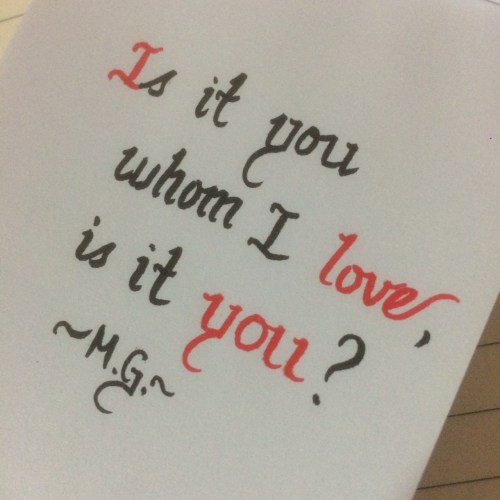 Is it you
whom I love,
is it you?
~M.G.~